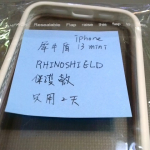 iphone
犀牛盾 13 mini
RHINOSHIELD
保護殼
只用2天